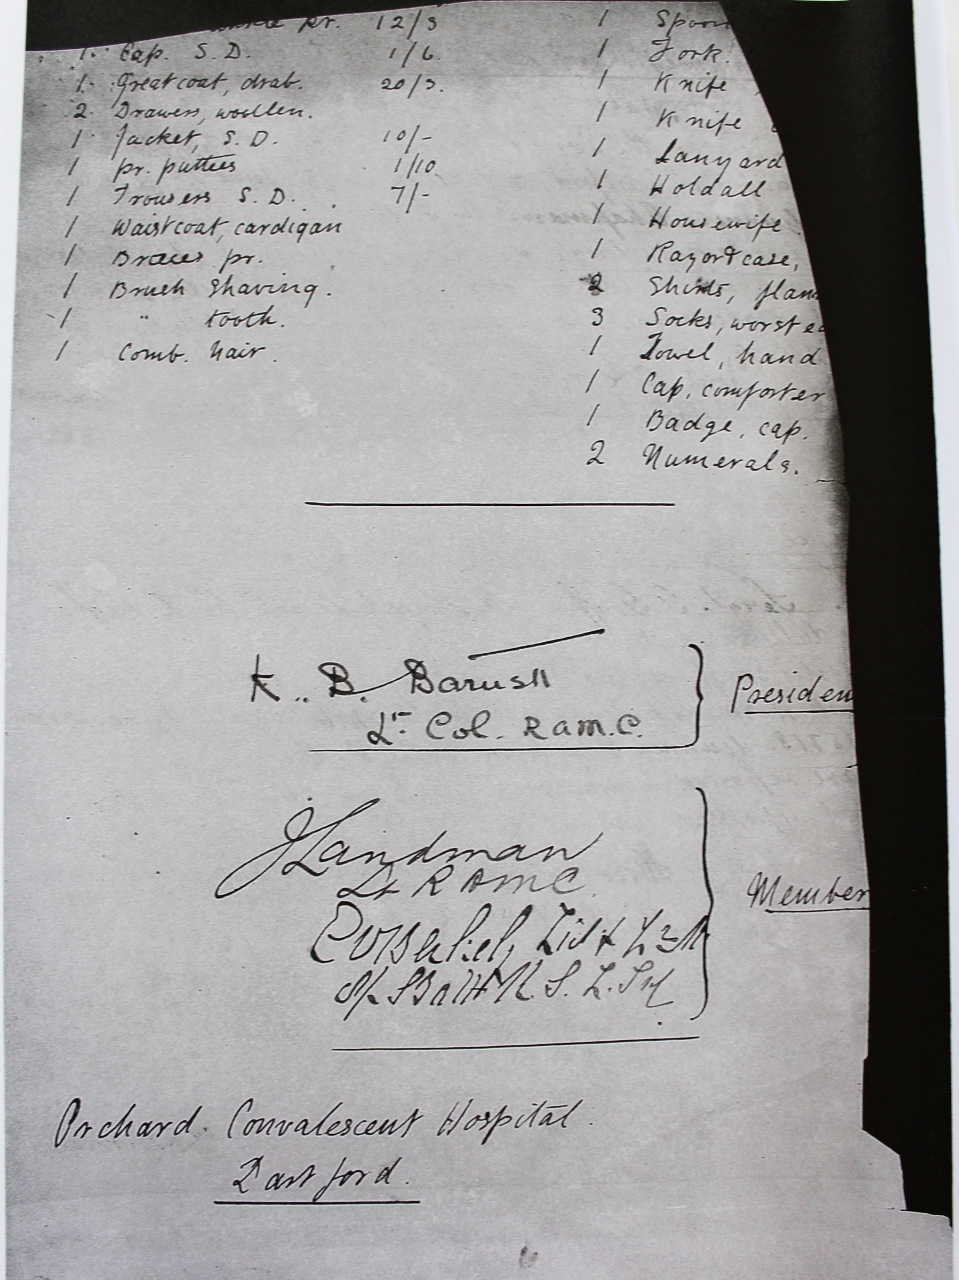 pr. 12/3
1. Cap. S.D. 1/6
1. Greatcoat, drab. 20/3.
2. Drawers, woollen.
1 Jacket, S.D. 10/-
1 pr. puttees 1/10
1 Trousers S.D. 7/-
1 Waistcoat, cardigan
1 Braces pr.
1 Brush Shaving.
1 " tooth.
1 Comb. hair.
1 Spoon
1 Fork.
1 Knife
1 Knife
1 Lanyard
1 Holdall
1 Housewife
1 Razor & case,
2 Shirts, flan
3 Socks, worsted
1 Towel, hand
1 Cap, comforter
1 Badge, cap.
2 Numerals.
K. B. Barnett
Lt Col. R.A.M.C.
Presiden
J Landman
Lt RAMC
Member
Orchard. Convalescent Hospital.
Dartford.